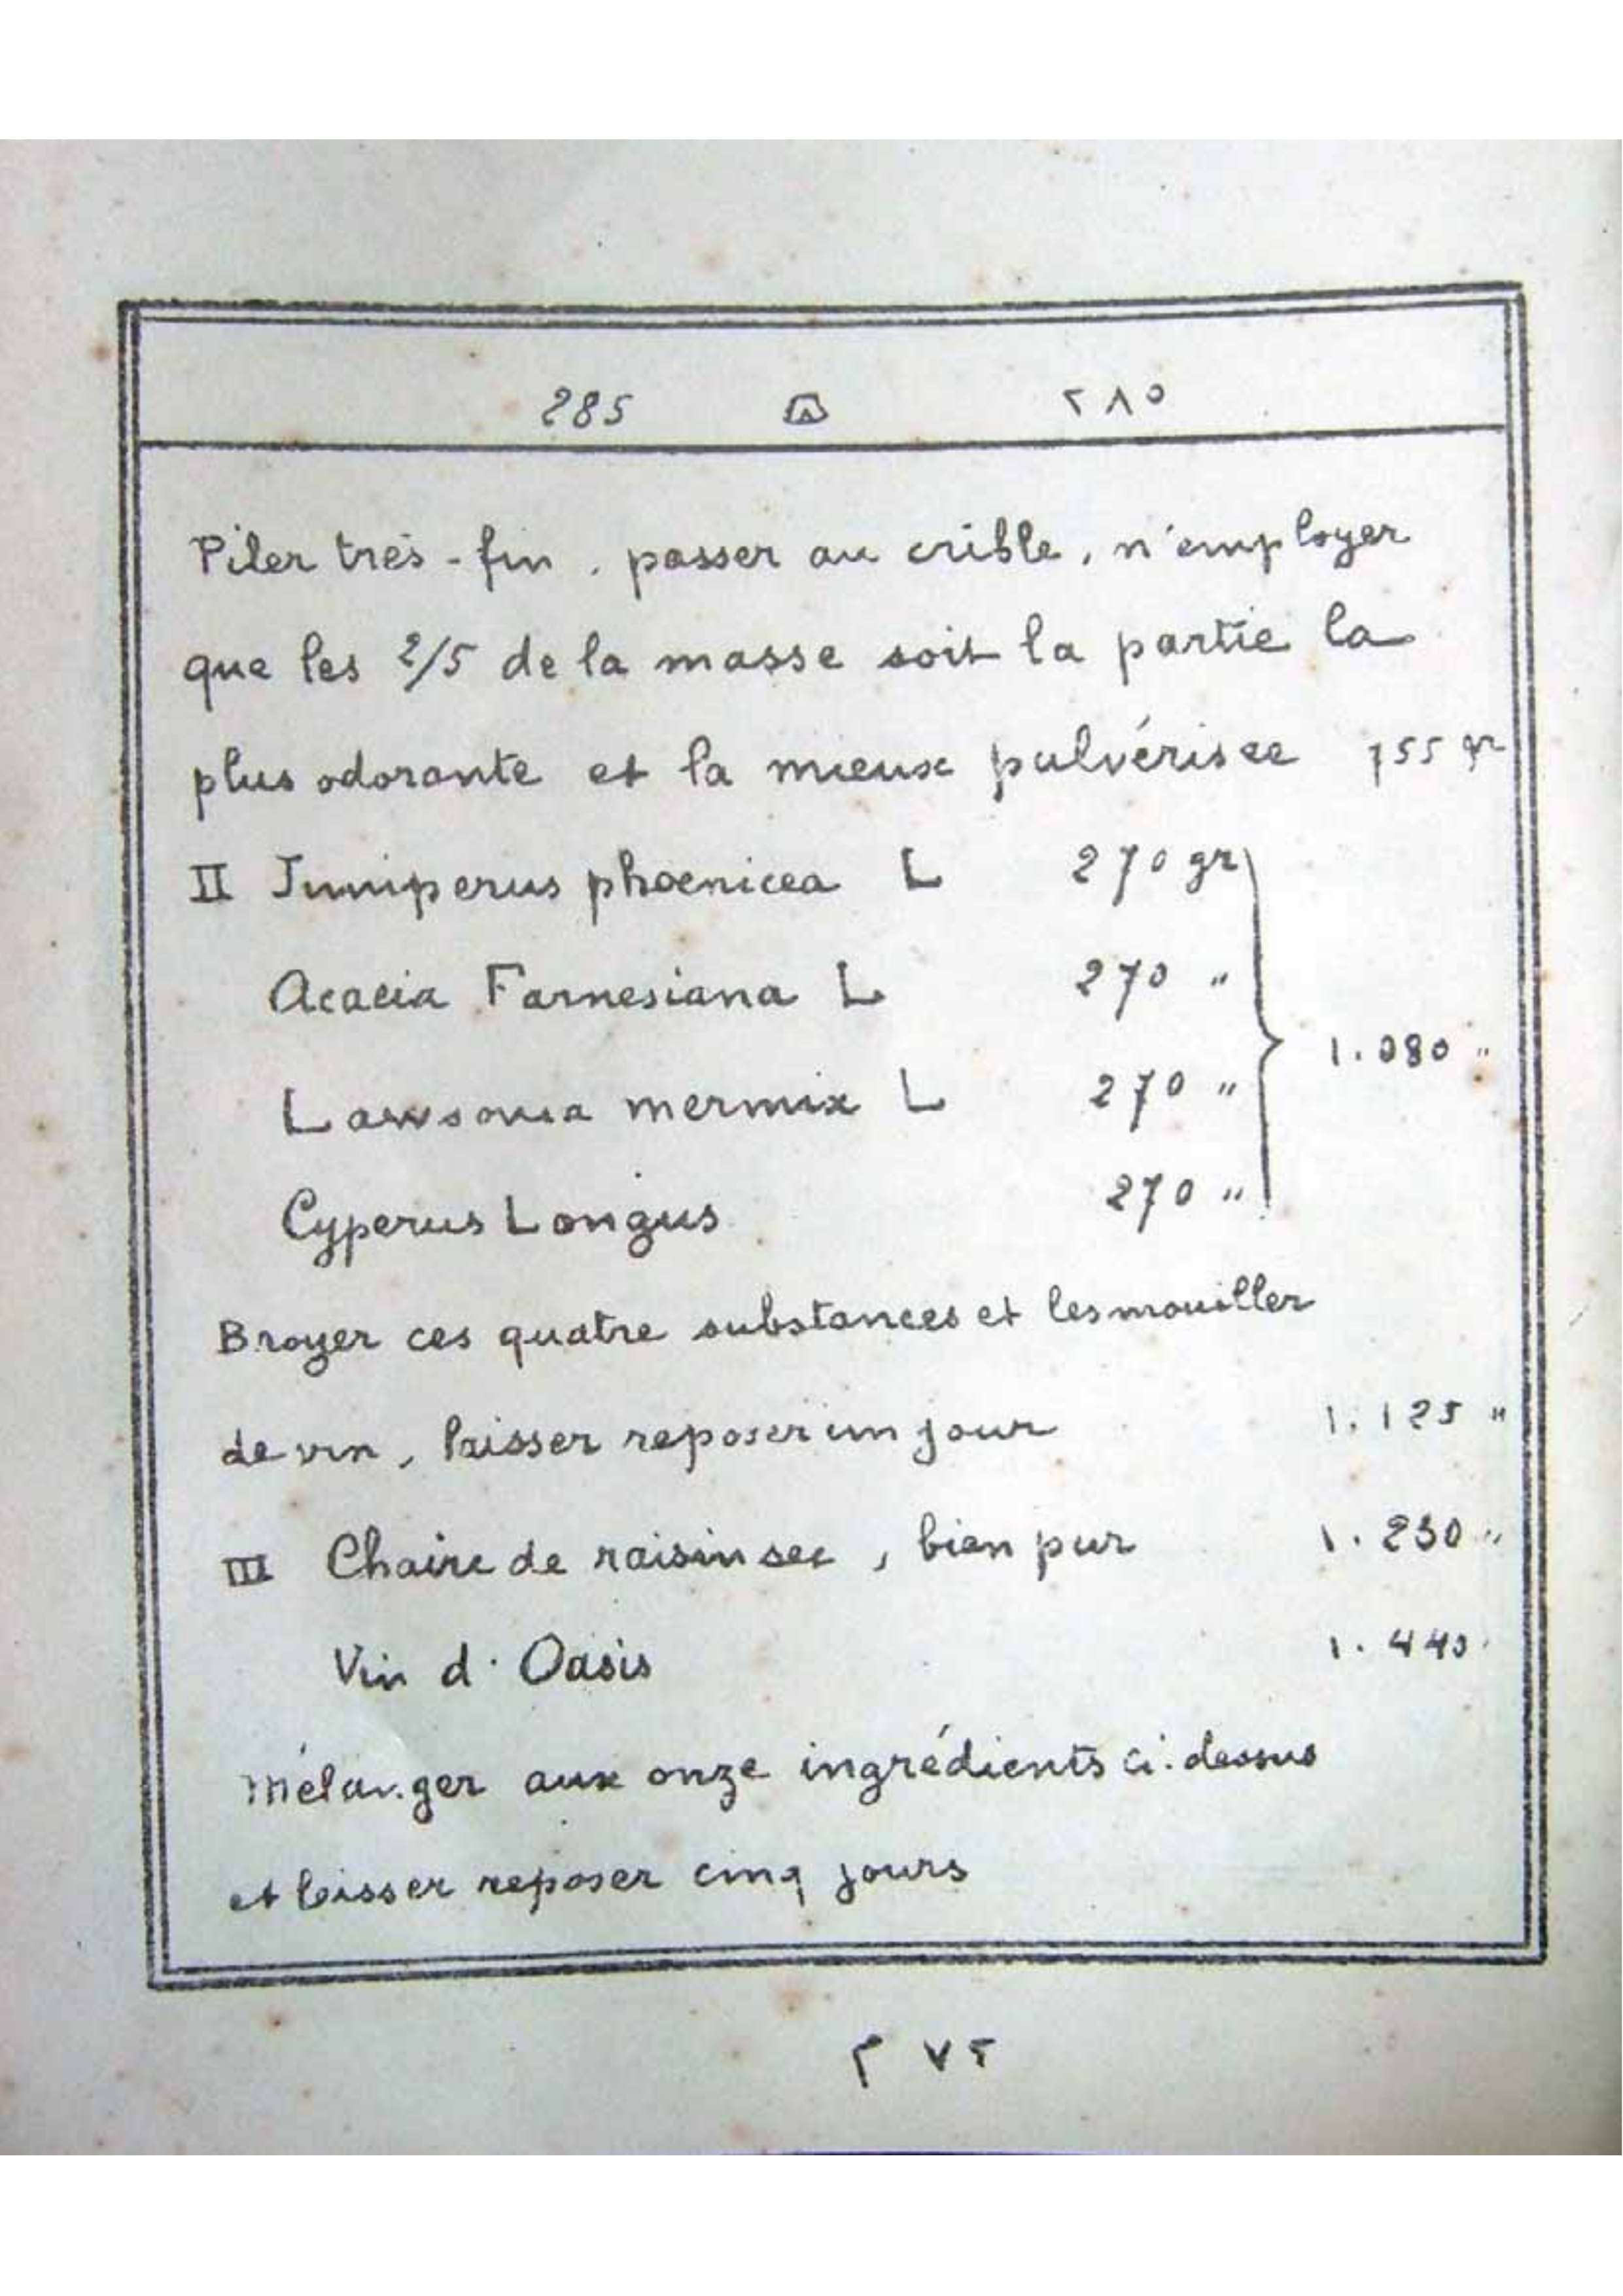 285 ٢٨٥
Piler très-fin, passer au crible, n'employer
que les 2/5 de la masse soit la partie la
plus odorante et la mieux pulvérisée 755 gr
II Juniperus phoenicea L 270 gr
Acacia Farnesiana L 270 "
1.080 "
Lawsonia mermix L 270 "
Cyperus Longus 270 "
Broyer ces quatre substances et les mouiller
de vin, laisser reposer un jour 1.125 "
III Chaire de raisin sec, bien pur 1.230 "
Vin d'Oasis 1.440
Mélanger aux onze ingrédients ci-dessus
et laisser reposer cinq jours
٢٧٢